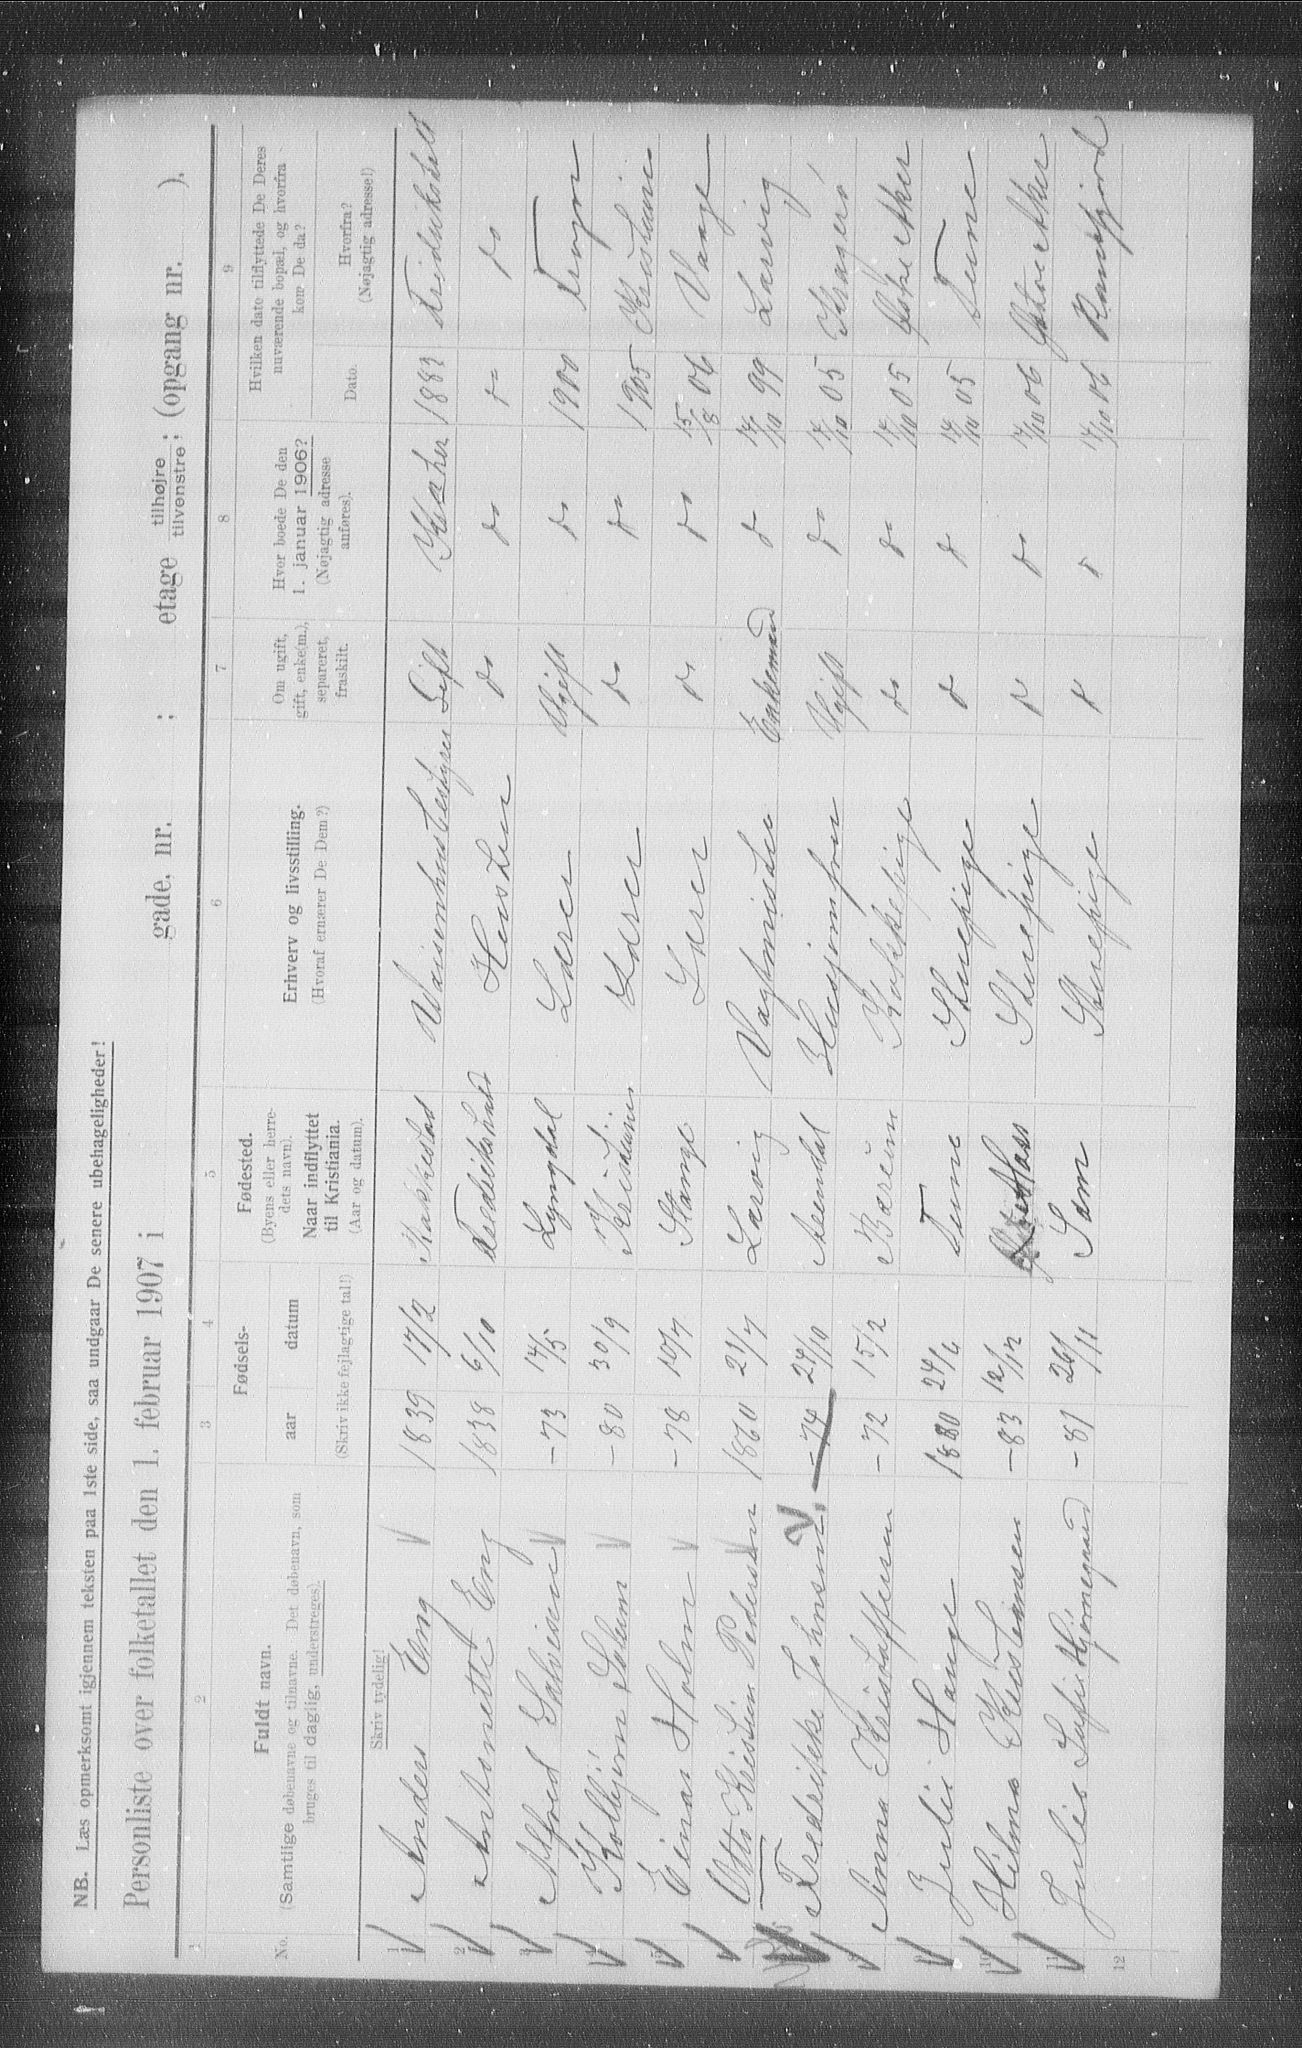 NB. Læs opmerksomt igjennem teksten paa 1ste side, saa undgaar De senere ubehageligheder!
Personliste over folketallet den 1. februar 1907 i gade, nr. ; etage tilhøjre tilvenstre; (opgang nr. ).
1 2 3 4 5 6 7 8 9
No. Fuldt navn. (Samtlige døbenavne og tilnavne. Det døbenavn, som bruges til daglig, understreges). Skriv tydelig!
Fødsels- aar datum (Skriv ikke fejlagtige tal!)
Fødested. (Byens eller herredets navn). Naar indflyttet til Kristiania. (Aar og datum).
Erhverv og livsstilling. (Hvoraf ernærer De Dem?)
Om ugift, gift, enke(m.), separeret, fraskilt.
Hvor boede De den 1. januar 1906? (Nøjagtig adresse anføres).
Hvilken dato tilflyttede De Deres nuværende bopæl, og hvorfra kom De da? Dato. Hvorfra? (Nøjagtig adresse!)
1 Anders Eng 1839 17/2 Rakkestad Waisenhusbestyrer Gift 1883 Fredrikshald
2 Antonette Eng 1838 6/10 Fredrikshald Hustru do do do do
3 Alfred Salvesen -73 14/5 Lyngdal Lærer Ugift do 1900 Trugen
4 Kolbjørn Solum -80 30/9 Kristiania Lærer do do 1905 Kristiania
5 Einar Holm -78 10/7 Stange Lærer do do 15/8 06 Vaage
6 Otto Kristian Pedersen 1860 21/7 Larvig Vagtmester Enkemand do 14/10 99 Larvig
7 Fredrikke Johnsen -74 24/10 Arendal Husjomfru Ugift do 14/10 05 Kragerø
8 Anna Kristoffersen -72 15/2 Bærum Kokkepige do do 14/10 05 Østre Aker
9 Julie Hauge 1880 24/6 Tune Stuepige do do 14/10 05 Tune
10 Hilma Kristiansen -83 12/12 Moss Stuepige do do 17/10 06 Østre Aker
11 Julie Sofie Hjemegaard -81 26/11 Sem Stuepige do do 17/10 06 Ramfjord
12